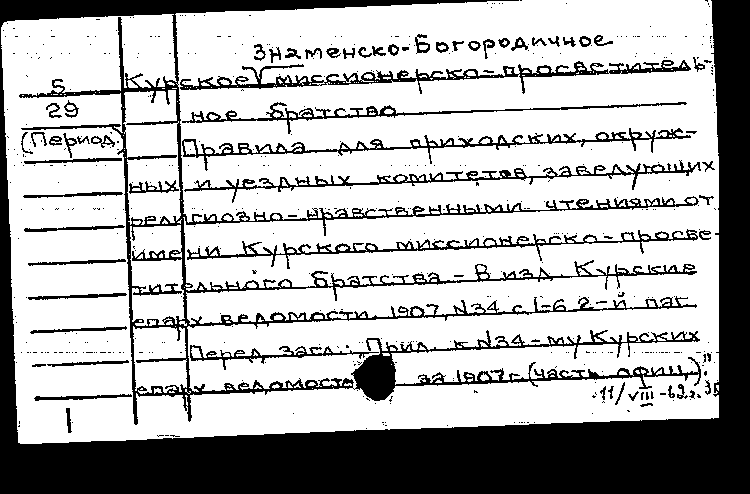 Знаменско-Богородичное
5 Курское √ миссионерско-просветитель-
29 ное братство
(Период.) Правила для приходских, окруж-
ных и уездных комитетов, заведующих
религиозно-нравственными чтениями от
имени Курского миссионерско-просве-
тительного братства - В изд. Курские
епарх ведомости. 1907, N34 с 1-6 2-й паг.
Перед загл.: „Прил. к N34-му Курских
епарх ведомость за 1907г. (часть офиц.)."
11/VIII-62г.
1